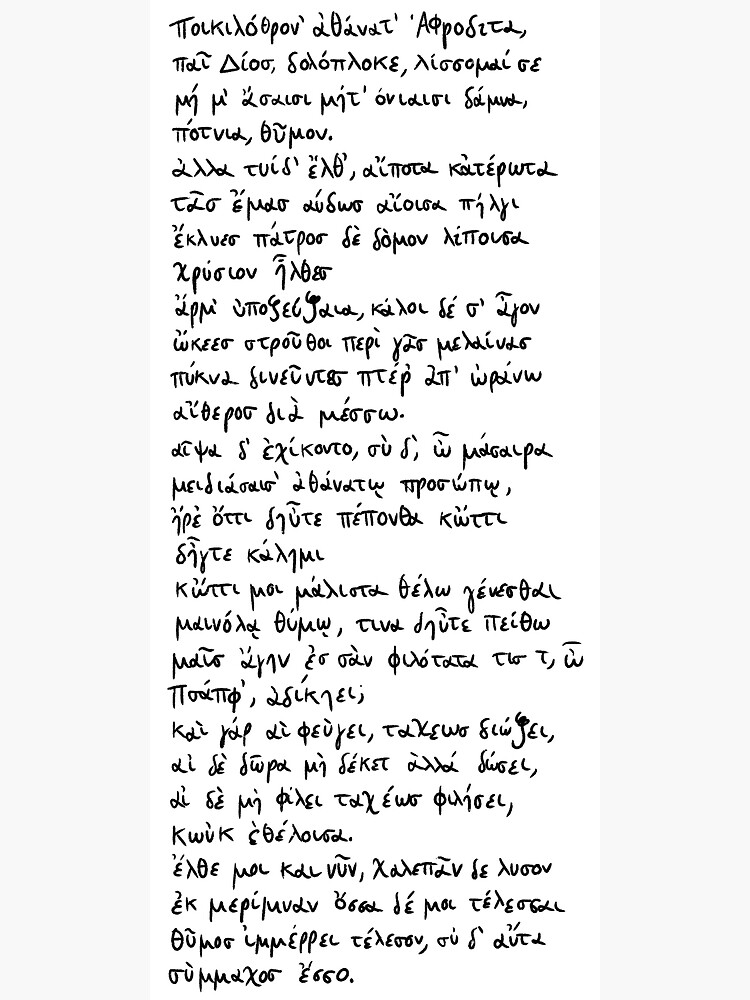 ποικιλόθρον' ἀθάνατ' Ἀφροδιτα,
παῖ Δίοσ, δολόπλοκε, λίσσομαί σε
μή μ' ἄσαισι μήτ' ὀνιαισι δάμνα,
πότνια, θῦμον.
ἀλλα τυίδ' ἔλθ', αἴποτα κἀτέρωτα
τᾶσ ἔμασ αύδωσ αἴοισα πήλγι
ἔκλυεσ πάτροσ δὲ δὸμον λίποισα
χρύσιον ἦλθεσ
ἄρμ' ὐποζεύξαια, κάλοι δέ σ' ἆγον
ὤκεεσ στροῦθοι περὶ γᾶσ μελαίνασ
πύκνα δινεῦντεσ πτέρ' ἀπ' ὠράνω
αἴθεροσ διὰ μέσσω.
αῖψα δ' ἐχίκοντο, σὺ δ', ὦ μάσαιρα
μειδιάσαισ' ἀθάνατῳ προσώπῳ,
ἤρἐ ὄττι δηὖτε πέπονθα κὤττι
δἦγτε κάλημι
κὤττι μοι μάλιστα θέλω γένεσθαι
μαινόλᾳ θύμῳ, τινα δηὖτε πείθω
μαῖσ ἄγην ἐσ σὰν φιλότατα τισ τ, ὦ
Πσάπφ', ἀδίκηει;
καὶ γάρ αἰ φεὺγει, ταχεωσ διώξει,
αἰ δὲ δῶρα μὴ δέκετ ἀλλά δώσει,
αἰ δὲ μὴ φίλει ταχέωσ φιλήσει,
κωὐκ ἐθέλοισα.
ἔλθε μοι και νῦν, χαλεπᾶν δε λυσον
ἐκ μερίμναν ὄσσα δέ μοι τέλεσσαι
θῦμοσ ἰμμέρρει τέλεσον, σύ δ' αὔτα
σὺμμαχοσ ἔσσο.